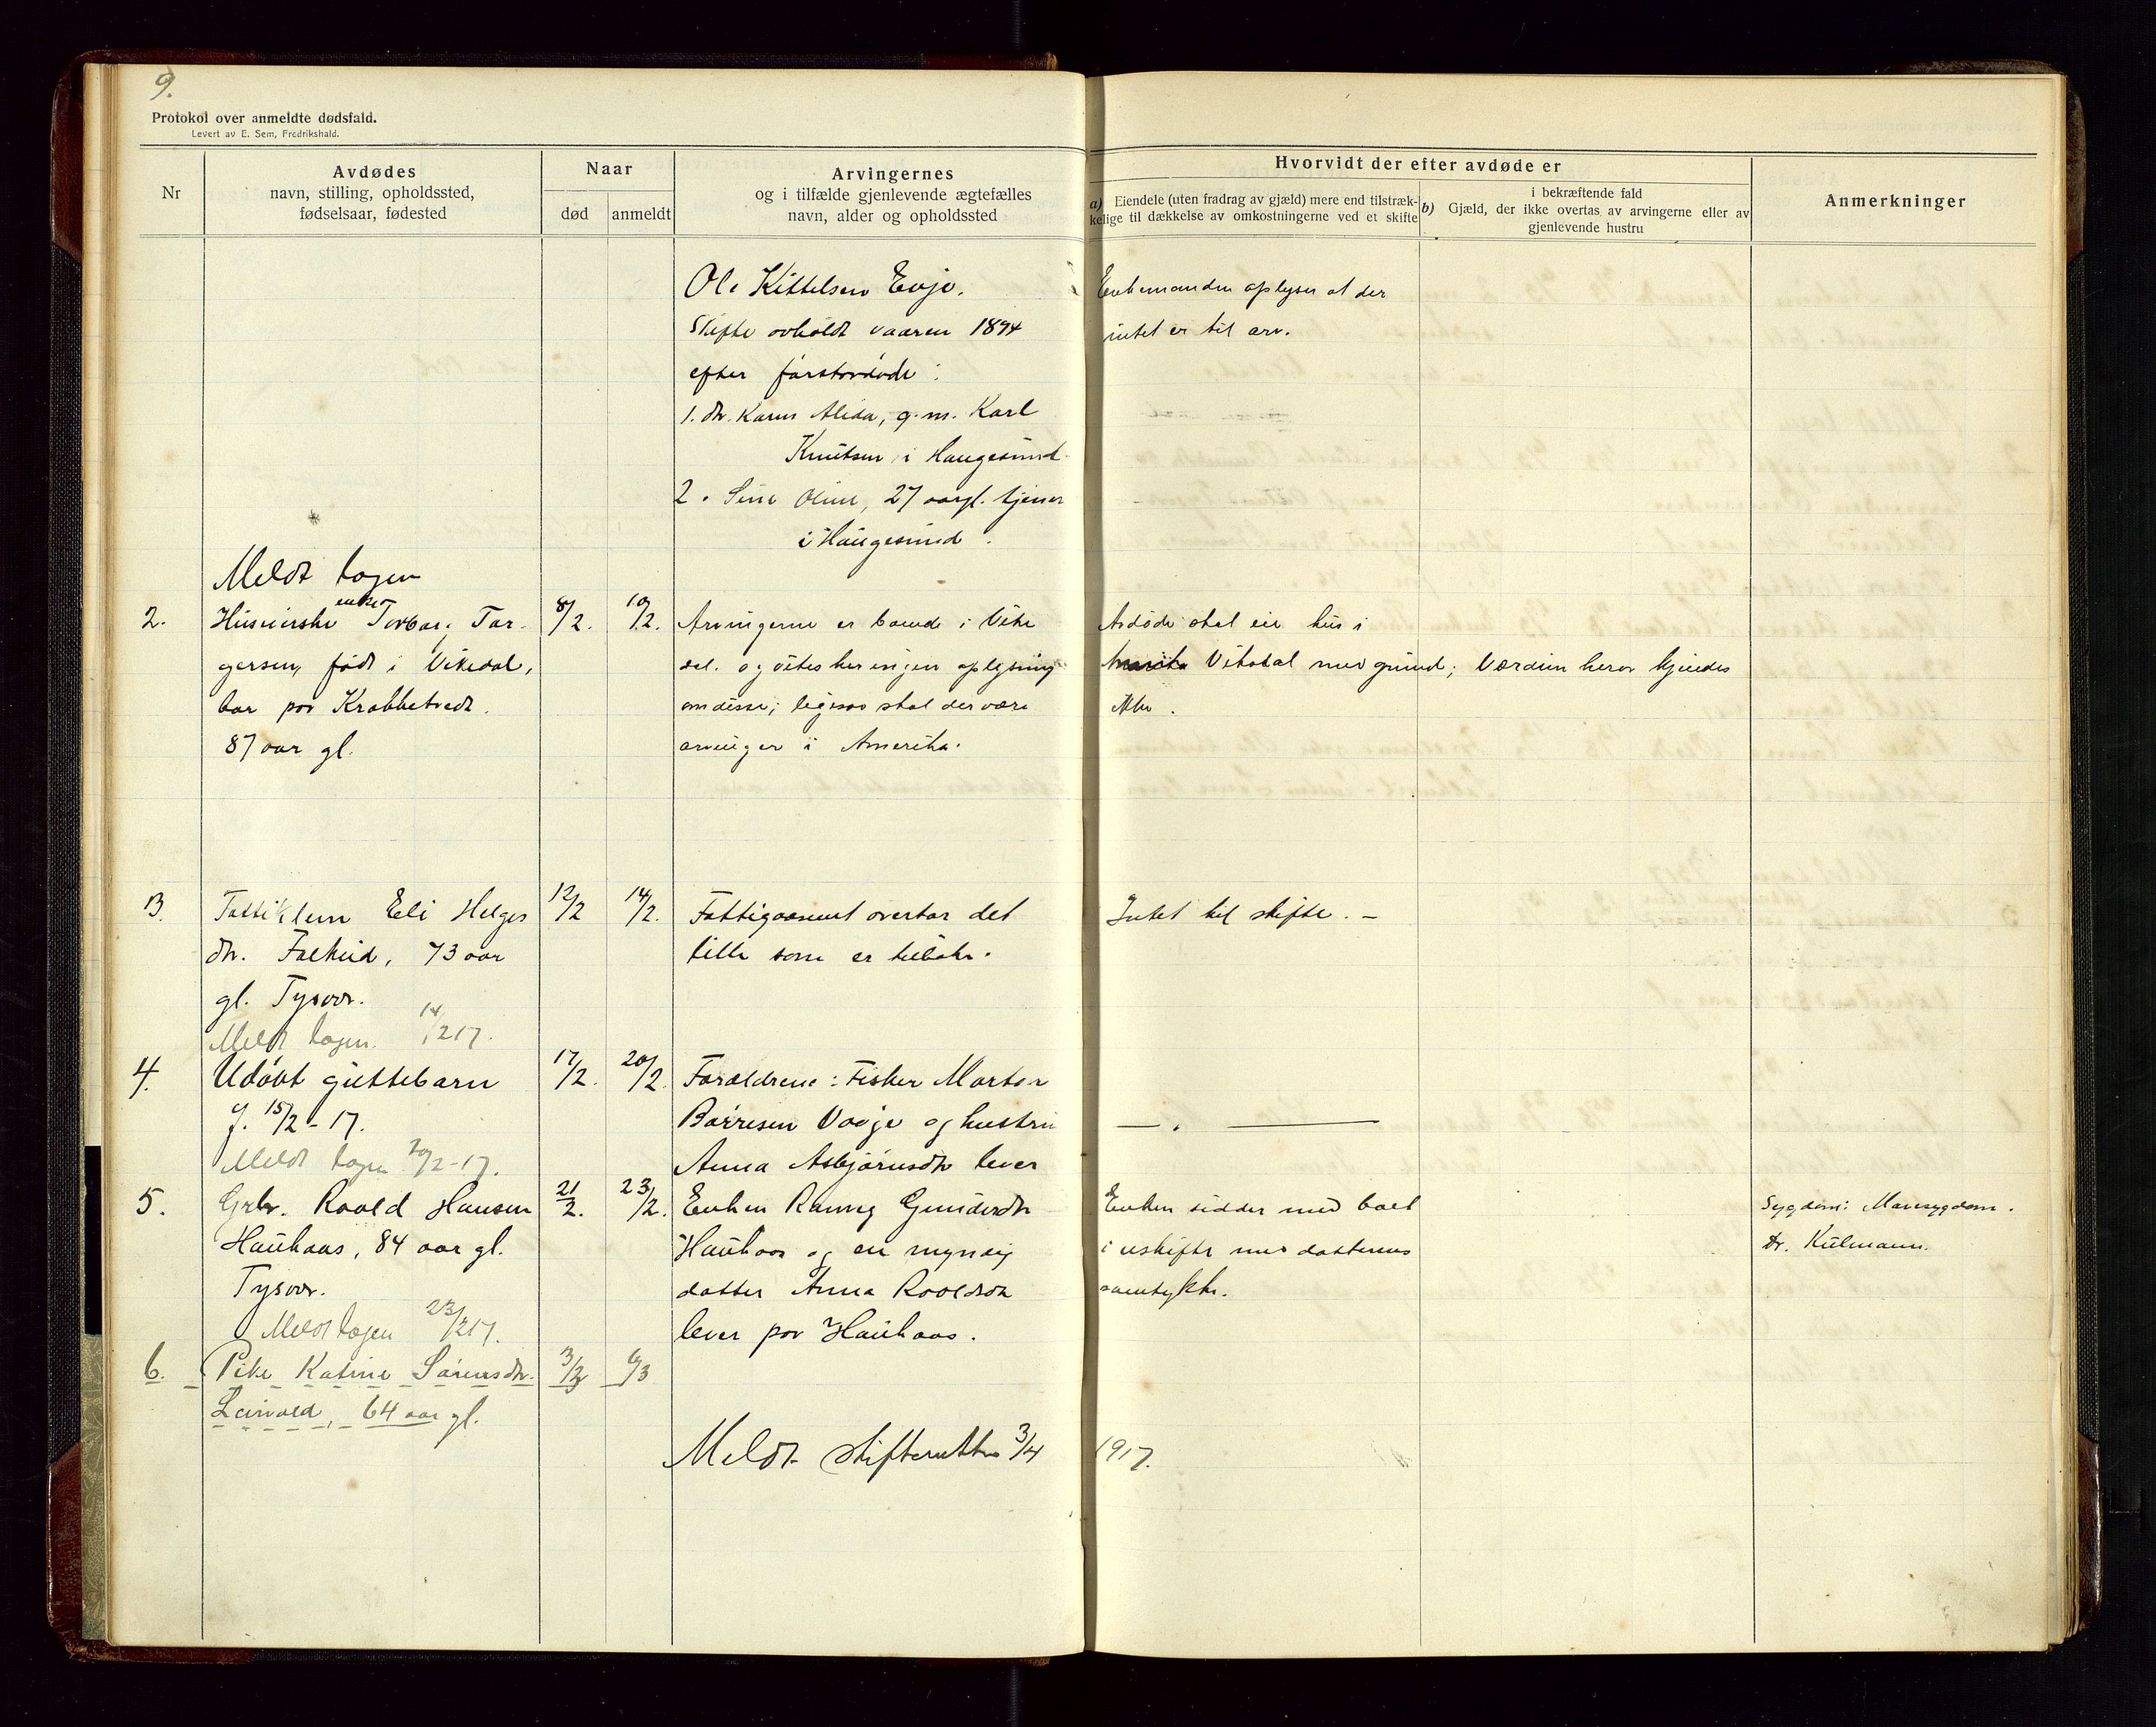 9.
Protokol over anmeldte dødsfald.
Levert av E. Sem, Fredrikshald.
Nr
Avdødes
navn, stilling, opholdssted,
fødselsaar, fødested
Naar
død
anmeldt
Arvingernes
og i tilfælde gjenlevende ægtefælles
navn, alder og opholdssted
Hvorvidt der efter avdøde er
a) Eiendele (uten fradrag av gjæld) mere end tilstræk-
kelige til dækkelse av omkostningerne ved et skifte
i bekræftende fald
b) Gjæld, der ikke overtas av arvingerne eller av
gjenlevende hustru
Anmerkninger
Ole Kittelsen Evje.
Skifte avholdt vaaren 1894
efter førstavdøde:
1. dtr. Karen Alida, g.m. Karl
Knutsen i Haugesund
2. Sine Oline, 27 aar gl. tjener
i Haugesund.
Enkemanden oplyser at der
intet er til arv.
Meldt lagen
2.
Huseierske enke Torbor Tor-
gersen, født i Vikedal,
bor paa Krabbetvedt.
87 aar gl.
8/2.
10/2.
Arvingerne er boende i Vike
dal. og vites her ingen oplysning
om disse; ligesaa skal der være
arvinger i Amerika.
Avdøde skal eie hus i
Vikedal med grund; Værdien herav kjendes
ikke.
3.
Fattiklem Eli Helges
dtr. Falkeid, 73 aar
gl. Tysvær.
Meldt lagen 14/2 17.
12/2
14/2.
Fattigvæsenet overtar det
lille som er tilbake.
Intet til skifte. -
4.
Udøbt guttebarn
f. 15/2 - 17.
Meldt lagen 20/2-17.
17/2.
20/2.
Forældrene: Fisker Morten
Børresen Vaage og hustru
Anna Asbjørnsdtr lever
— . —
5.
Grbr. Roald Hansen
Hauhaas, 84 aar gl.
Tysvær.
Meldt lagen 23/2 17.
21/2.
23/2.
Enken Ranveg Gundersdtr
Hauhaas og en myndig
datter Anna Roaldsdtr
lever paa Hauhaas.
Enken sidder med boet
i uskifte med datterens
samtykke.
Sygdom: Mavesygdom.
Dr. Kulmann.
6.
Pike Katrine Sørensdtr.
64 aar gl.
3/3
6/3
Meldt skifteretten 3/4 1917.